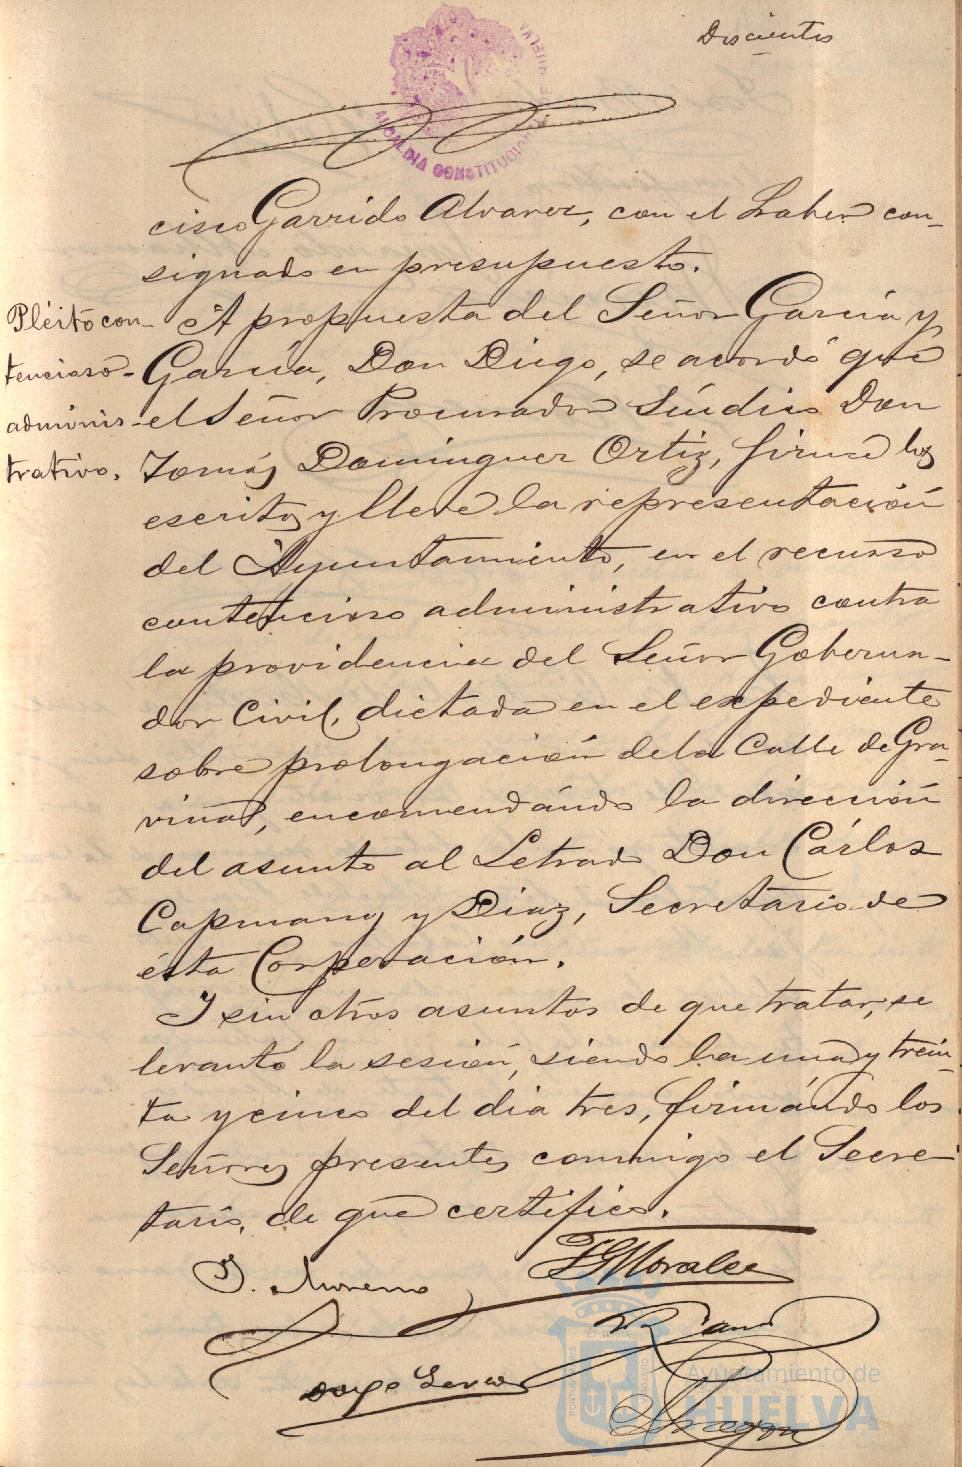 Doscientos
ALCALDIA CONSTITUCIONAL DE HUELVA
cisco Garrido Alvarez, con el haber con-
signado en presupuesto.
Pléito con-
tencioso-
adminis-
trativo.
A propuesta del Señor García y
García, Don Diego, se acordó que
el Señor Procurador Síndico Don
Tomás Dominguez Ortiz, firme los
escritos y lleve la representación
del Ayuntamiento, en el recurso
contencioso administrativo contra
la providencia del Señor Goberna-
dor Civil, dictada en el expediente
sobre prolongación de la Calle de Gra-
vina, encomendándo la dirección
del asunto al Letrado Don Cárlos
Capmany y Diaz, Secretario de
ésta Corporación.
Y sin otros asuntos de que tratar, se
levantó la sesión, siendo la una y trein-
ta y cinco del dia tres, firmándo los
Señores presentes conmigo el Secre-
tario, de que certifico.
J. Moreno
F G Morales
Diego García
Aragon
Ayuntamiento de
HUELVA